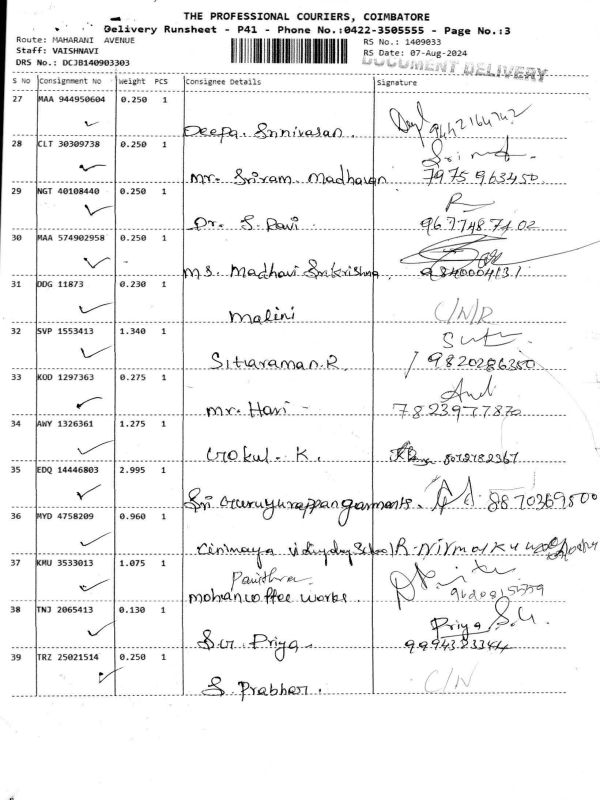 THE PROFESSIONAL COURIERS, COIMBATORE
Delivery Runsheet - P41 - Phone No.:0422-3505555 - Page No.:3
Route: MAHARANI AVENUE
RS No.: 1409033
Staff: VAISHNAVI
RS Date: 07-Aug-2024
DRS No.: DCJB140903303
DOCUMENT DELIVERY
S No Consignment No Weight PCS Consignee Details Signature
27 MAA 944950604 0.250 1
Deepa. Srinivasan. 9442164742
28 CLT 30309738 0.250 1
mr. Sriram Madhavan 7975963450
29 NGT 40108440 0.250 1
Dr. S. Ravi 9677487102
30 MAA 574902958 0.250 1
ms. Madhavi Srikrishna 9840004131
31 DDG 11873 0.230 1
malini C/N/R
32 SVP 1553413 1.340 1
Sittaraman.R. 9820286350
33 KOD 1297363 0.275 1
mr. Hari - 7823977870
34 AWY 1326361 1.275 1
Gokul. K. 8072782367
35 EDQ 14446803 2.995 1
Sri Guruyurappan garments. 8870369500
36 MYD 4758209 0.960 1
School R. Nirmal
37 KMU 3533013 1.075 1
Pavithra
mohan coffee works
38 TNJ 2065413 0.130 1
Priya S.G.
S.G. Priya. 9994333344
39 TRZ 25021514 0.250 1
S. Prabhar. C/N